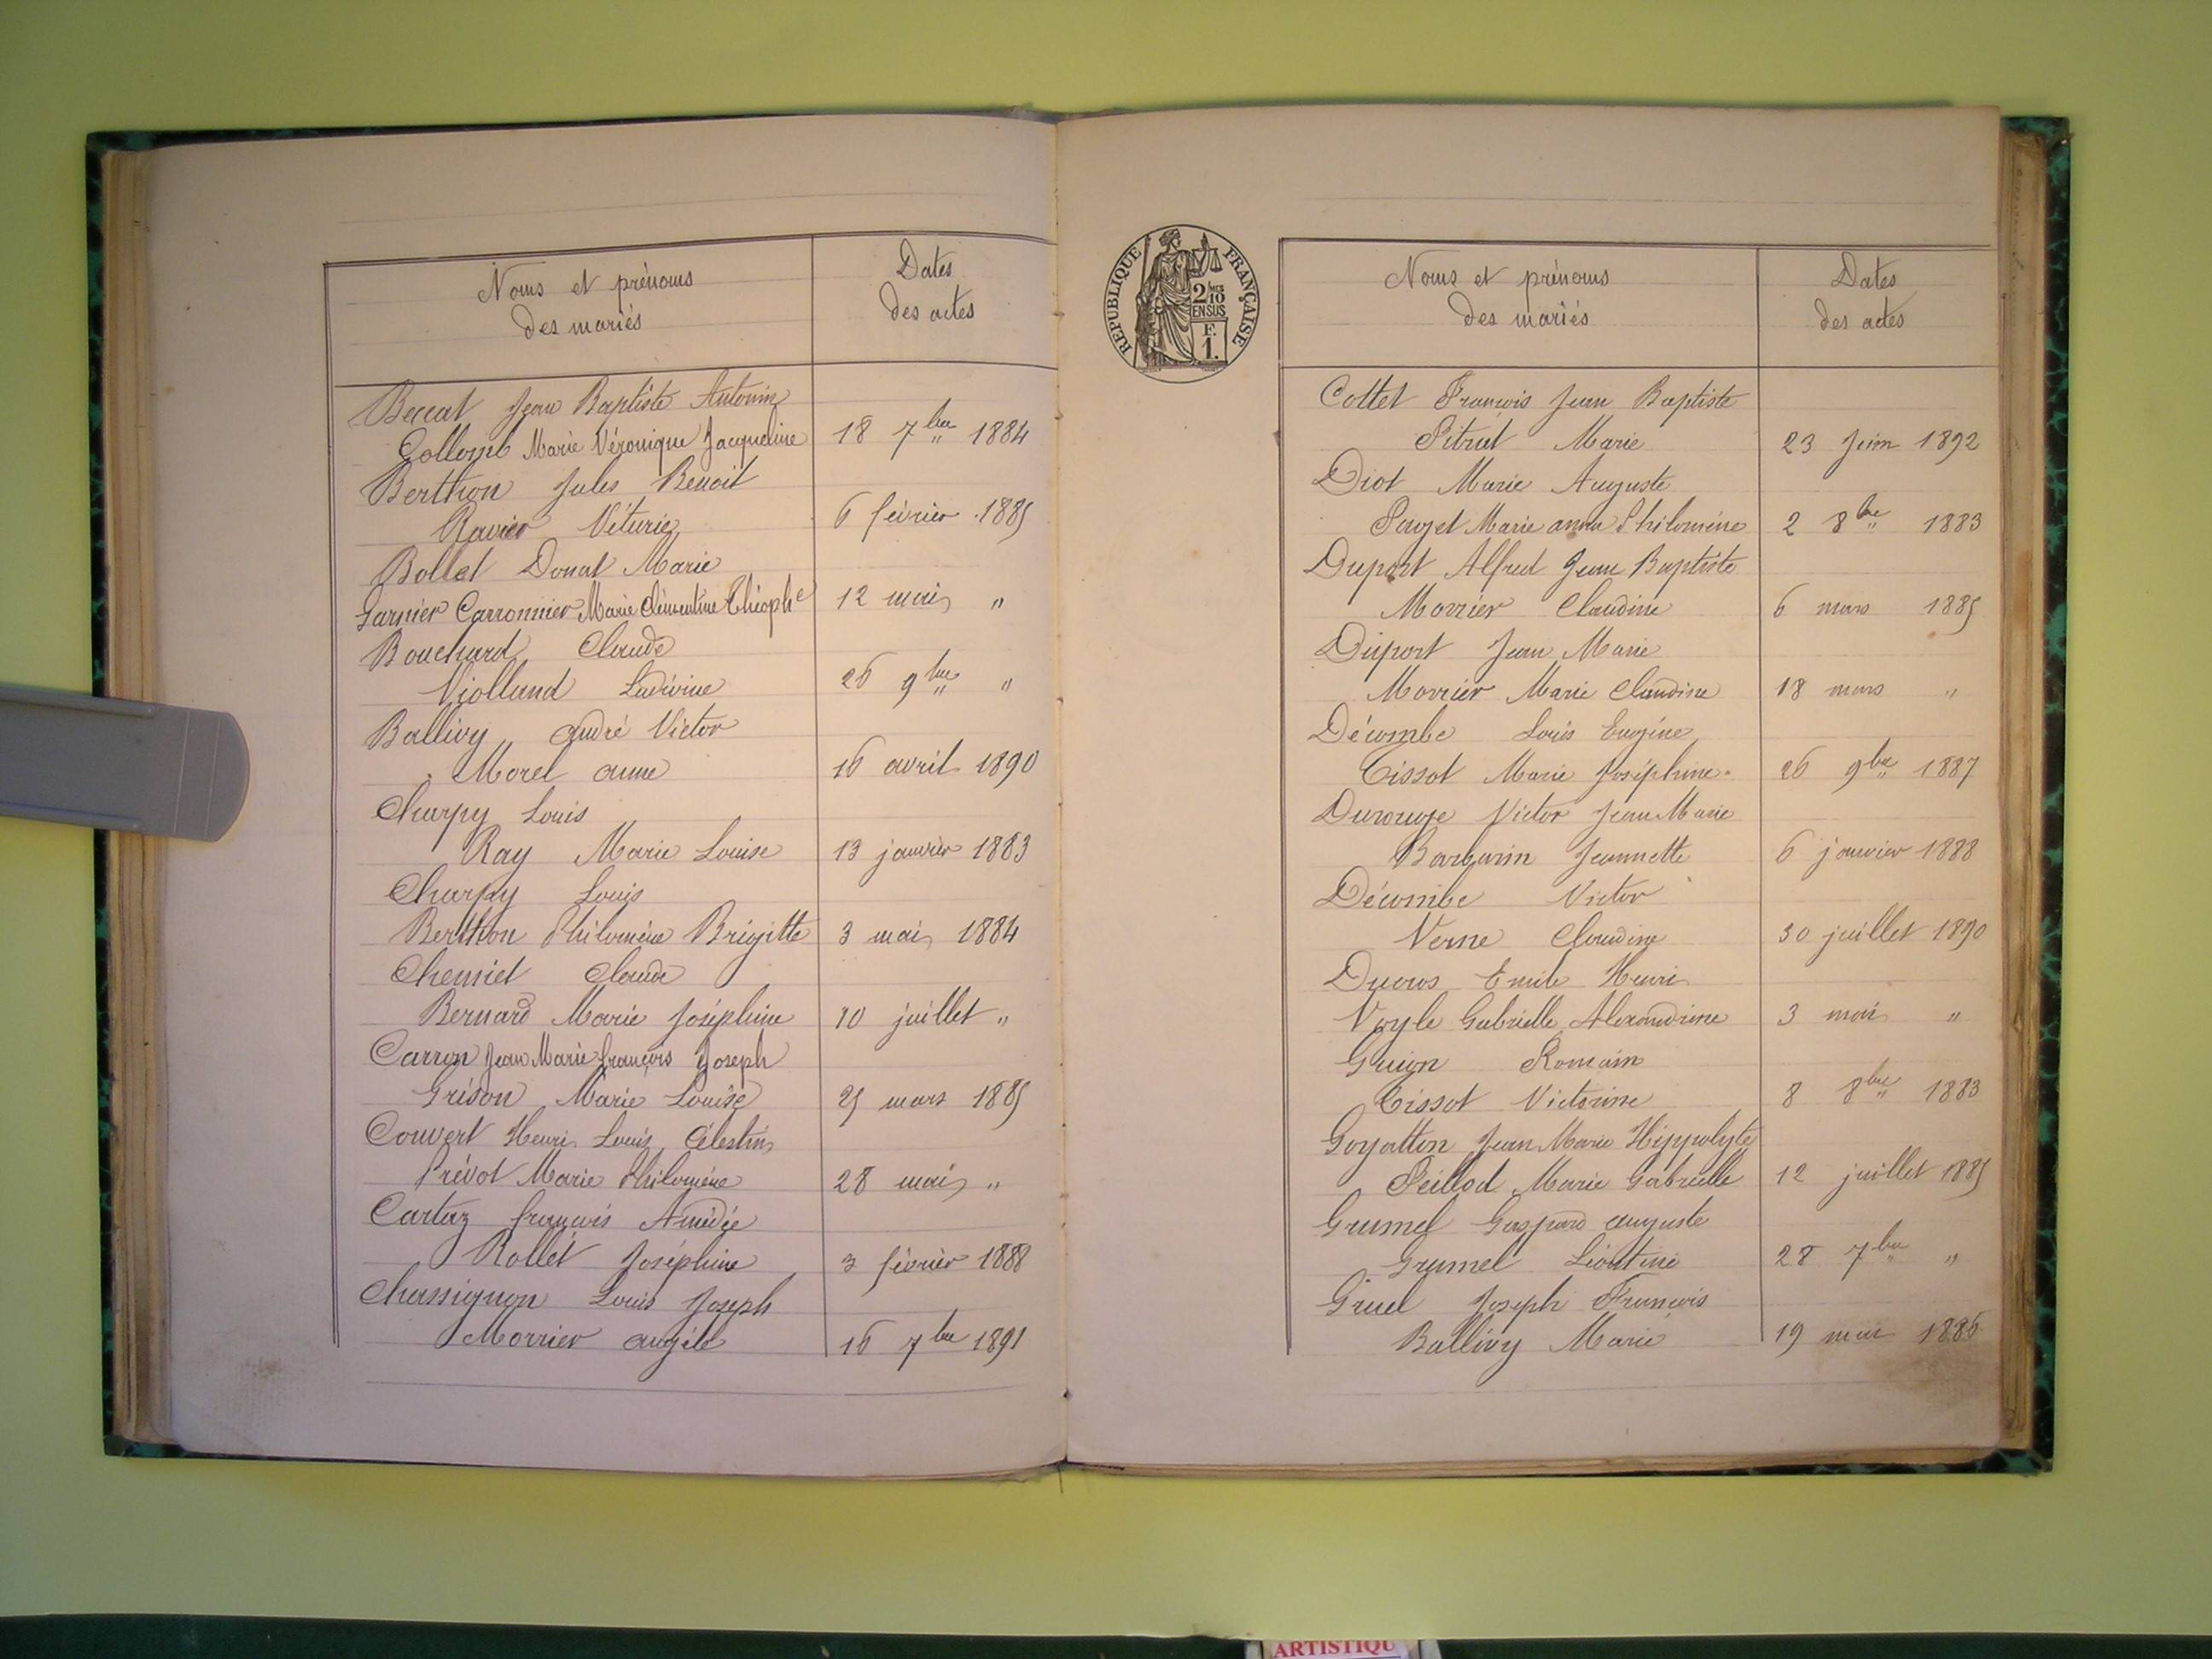 Noms et prénoms
des mariés
Dates
des actes
Beccat Jean Baptiste Antonin
Collomb Marie Véronique Jacqueline 18 7bre 1884
Berthon Jules Benoit
Ravier Véturie 6 février 1885
Bollet Donat Marie
Garnier Carronnier Marie Clémentine Théophe 12 mai "
Bouchard Claude
Violland Ludivine 26 9bre "
Ballivy André Victor
Morel Anne 16 avril 1890
Charpy Louis
Ray Marie Louise 13 janvier 1883
Charpy Louis
Berthon Philomène Brigitte 3 mai 1884
Chemiel Claude
Bernard Marie Joséphine 10 juillet "
Carron Jean Marie François Joseph
Grison Marie Louise 25 mars 1885
Couvert Henri Louis Célestin
Prévot Marie Philomène 28 mai "
Cartaz François Amédée
Rollet Joséphine 3 février 1888
Chassignon Louis Joseph
Morrier Angèle 16 7bre 1891
RÉPUBLIQUE FRANÇAISE
2/10
EN SUS
F.
1.
Noms et prénoms
des mariés
Dates
des actes
Cottet François Jean Baptiste
Pitrat Marie 23 Juin 1892
Diot Marie Auguste
Puget Marie Anna Philomène 2 8bre 1883
Duport Alfred Jean Baptiste
Morrier Claudine 6 mars 1885
Duport Jean Marie
Morrier Marie Claudine 18 mars "
Décombe Louis Eugène
Tissot Marie Joséphine 26 9bre 1887
Durouge Victor Jean Marie
Barbarin Jeannette 6 janvier 1888
Décombe Victor
Verne Claudine 30 juillet 1890
Ducros Emile Henri
Voyle Gabrielle Alexandrine 3 mai "
Guion Romain
Tissot Victorine 8 8bre 1883
Goyatton Jean Marie Hippolyte
Peillod Marie Gabrielle 12 juillet 1885
Grumel Gaspard Auguste
Grumel Léontine 28 7bre "
Gruel Joseph François
Ballivy Marie 19 mai 1886
ARTISTIQU